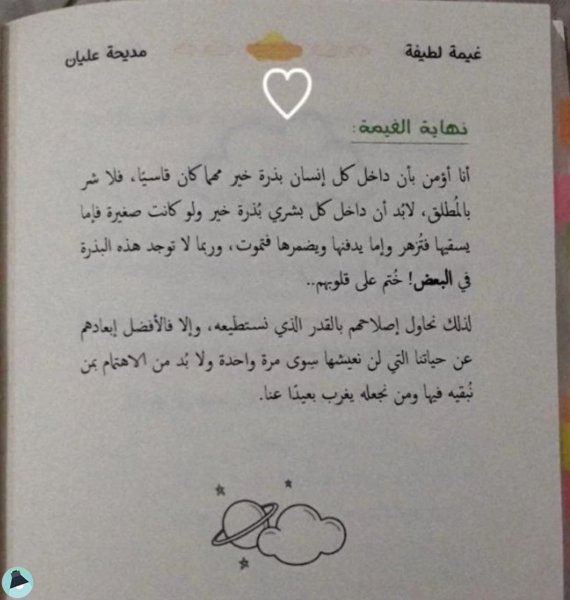 غيمة لطيفة
مديحة عليان
نهاية الغيمة:
أنا أؤمن بأن داخل كل إنسان بذرة خير مهما كان قاسيًا، فلا شر
بالمُطلق، لابُد أن داخل كل بشري بُذرة خير ولو كانت صغيرة فإما
يسقيها فتُزهر وإما يدفنها ويضمرها فتموت، وربما لا توجد هذه البذرة
في البعض! خُتم على قلوبهم..
لذلك نحاول إصلاحهم بالقدر الذي نستطيعه، وإلا فالأفضل إبعادهم
عن حياتنا التي لن نعيشها سِوى مرة واحدة ولا بُد من الاهتمام بمن
نُبقيه فيها ومن نجعله يغرب بعيدًا عنا.